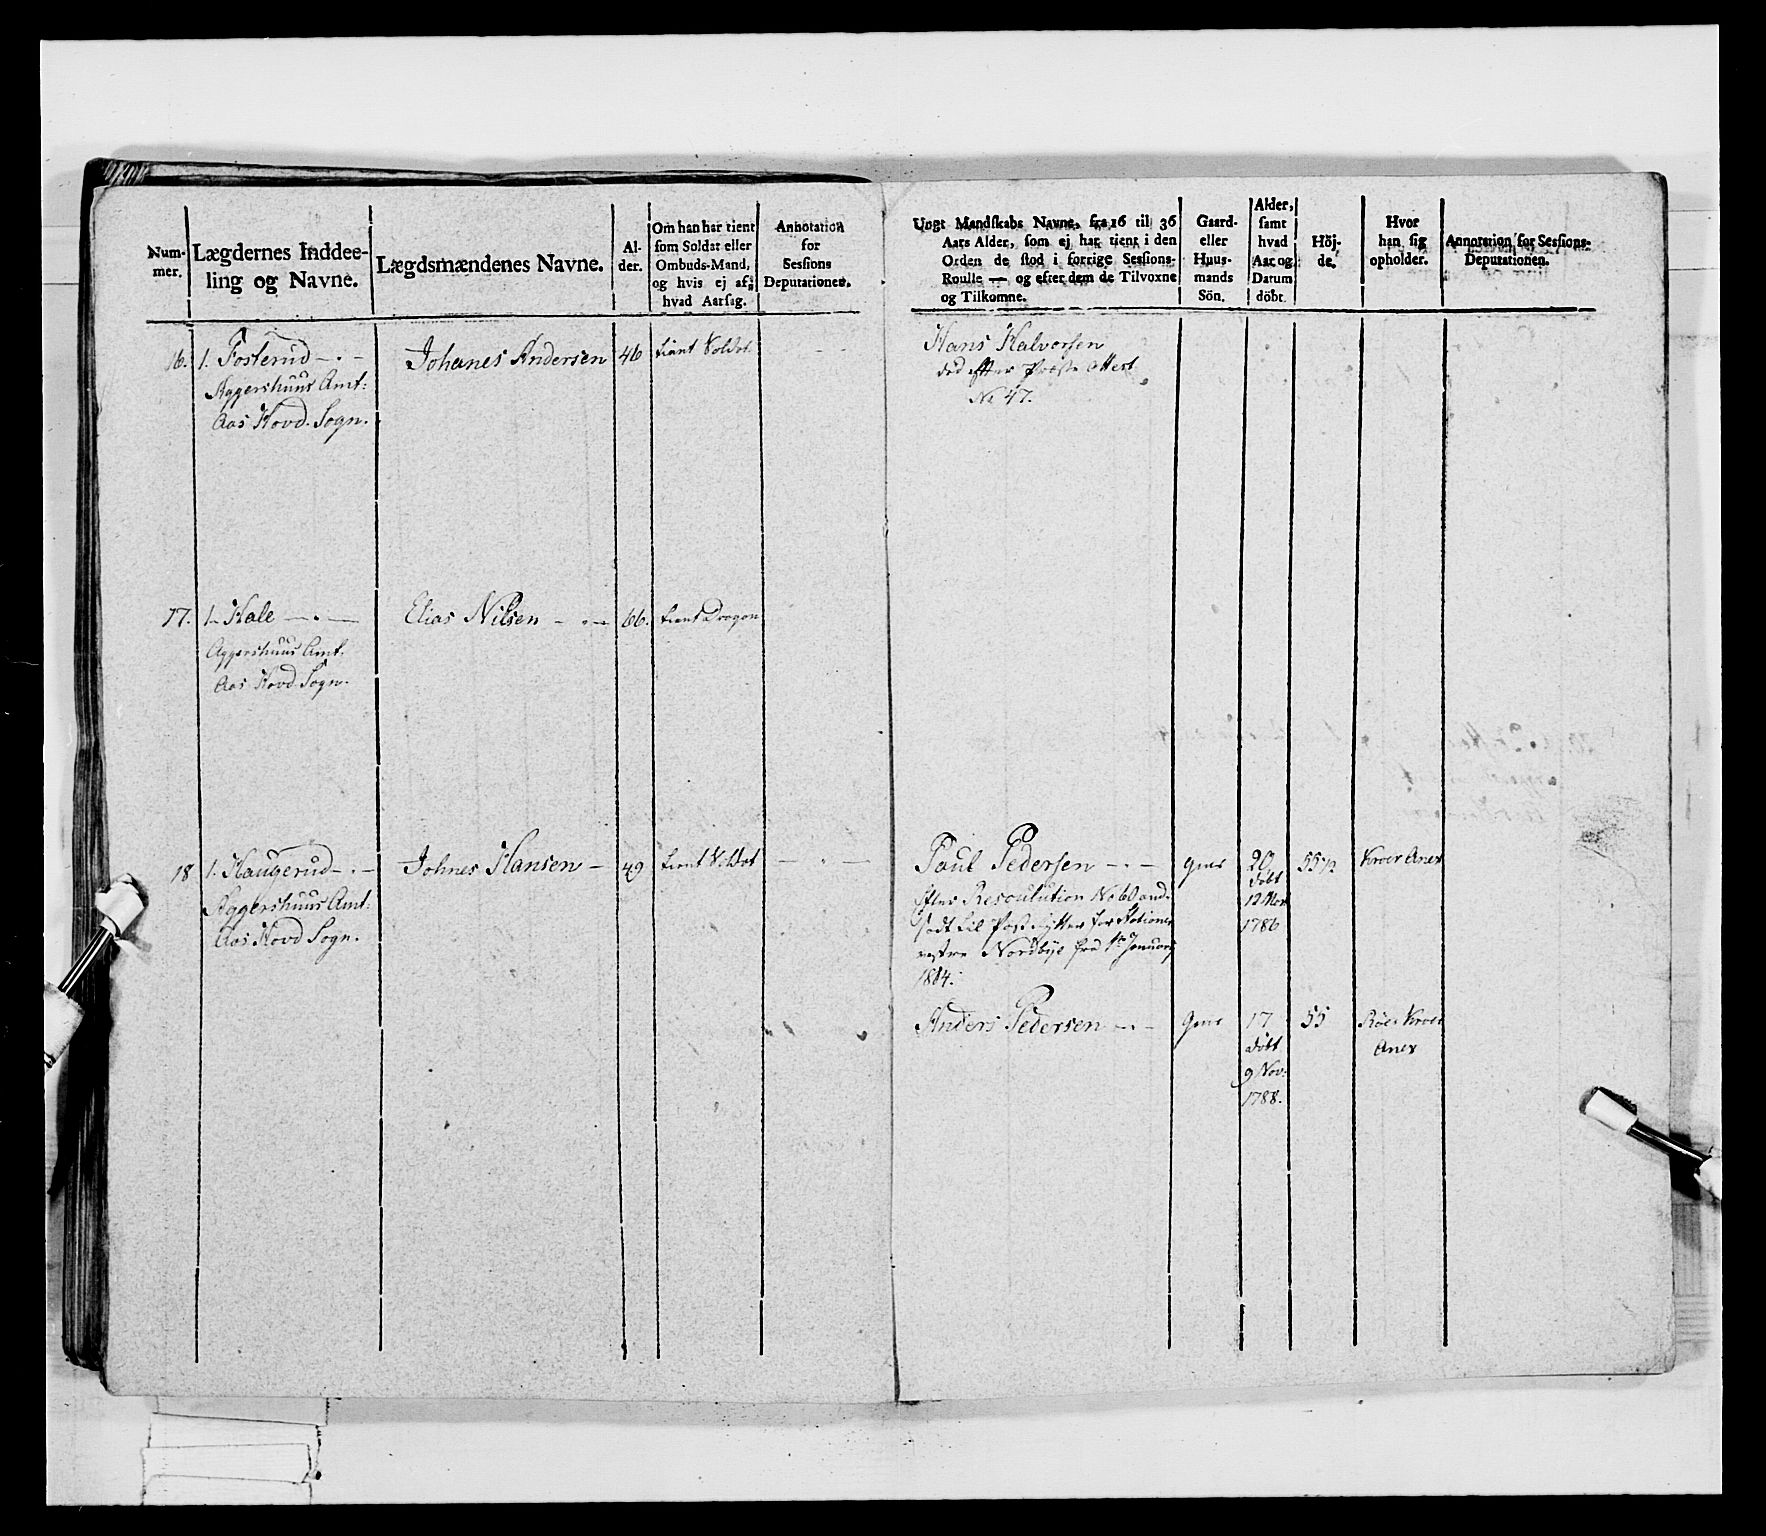 Num-
mer.
Lægdernes Inddee-
ling og Navne.
Lægdsmændenes Navne.
Al-
der.
Om han har tient
som Soldat eller
Ombuds-Mand,
og hvis ej af
hvad Aarsag.
Annotation
for
Sessions
Deputationen.
Ungt Mandskabs Navne, fra 16 til 36
Aars Alder, som ej har tient i den
Orden de stod i forrige Sessions-
Roulle — og efter dem de Tilvoxne
og Tilkomne.
Gaard-
eller
Huus-
mands
Sön.
Alder,
samt
hvad
Aar og
Datum
döbt.
Höj-
de.
Hvor
han sig
opholder.
Annotation for Sessions-
Deputationen.
16. 1. Fosterud Johanes Andersen 46 tient Soldat Hans Halvorsen
Aggershuus Amt: död efter Præste Attest
Aas Hovd. Sogn. No 47.
17. 1. Hale Elias Nilsen 66. tient Dragon
Aggershuus Amt.
Aas Hovd Sogn.
18 1. Haugerud Johnes Hansen 49 tient Soldat Paul Pedersen gms 20 55 1/2 Kroer Anex
döbt
Aggershuus Amt: Efter Resoulution No 60 and- 12 Nov
Aas Hovd Sogn. til Post for Stationen 1786
Nordbye fra 1te January
1814.
Anders Pedersen gms 17 55 Röe Kroer
döbt Anex
9 Nov:
1788.